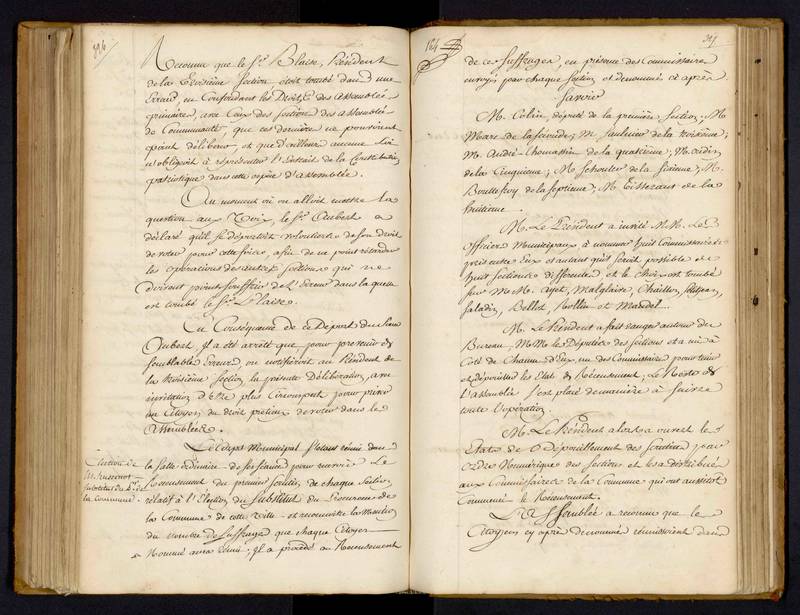 396
Reconnu que le Sr. Blaise, Président
de la troisième Section étoit tombé dans une
Erreur, en Confondant les Droits des assemblées
primaires, avec Ceux des Sections des assemblées
de Communauté, que ces dernières ne pouvoient
point délibérer, et que d'ailleurs aucune Loi
n'obligeoit à représenter l'Extrait de la Contribution
patriotique dans cette espèce d'assemblée.
Au moment où on alloit mettre la
question aux Voix, le Sr. Aubert a
déclaré qu'il se départoit volontiers de son droit
de voter pour cette fois, afin de ne point retarder
les opérations des autres Sections qui ne
doivent point souffrir de l'Erreur dans laquelle
est tombé le Sr. Blaise.
En Conséquence de ce Départ du Sieur
Aubert, Il a été arrêté que pour prévenir de
semblables Erreurs, on notifieroit au Président de
la troisième Section la présente Délibération, avec
invitation d'Etre plus Circonspect pour priver
un Citoyen du droit précieux de voter dans les
assemblées.
Election de
M.
Substitut du P. de
la Commune
Le Corps Municipal s'étant réuni dans
la Salle ordinaire de ses Séances pour suivre Le
Recensement du premier Scrutin, de chaque Section,
relatif à l'Election du Substitut du Procureur de
la Commune de cette Ville et reconnoitre la
du nombre de Suffrages que chaque Citoyen
Nommé avoit réuni; Il a procédé au Recensement
184
397
de ces Suffrages, en présence des Commissaires
envoyés par chaque Section et dénommés cy après
Savoir
M. Colin, député de la première Section; M.
Marc de la seconde; M. Saulnier de la troisième;
M. André Thomassin de la quatrième; M.
de la Cinquieme; M. de la Sixieme; M.
de la Septieme; M. Tisserant de la
huitieme.
M. Le Président a invité MM. Les
Officiers Municipaux à nommer huit Commissaires
pris entre Eux et autant qu'il seroit possible de
huit Sections différentes et le Choix est tombé
sur MM. Malglaive, Chaillon,
Saladin, Bellot, Rollin et Mandel.
M. Le Président a fait ranger autour du
Bureau, MM. les Députés des Sections et a mis à
Coté de Chacun d'Eux un des Commissaires pour tenir
et dépouiller les Etats de Recensement. Le Reste de
l'Assemblée s'est placé de manière à suivre
toute l'opération.
M. Le Président alors a ouvert les
Etats de Dépouillement des Scrutins par
ordre Numérique des Sections et les a distribués
aux Commissaires de la Commune qui ont aussitot
Commencé le Recensement.
L'Assemblée a reconnu que les
Citoyens cy après dénommés réunissoient dans